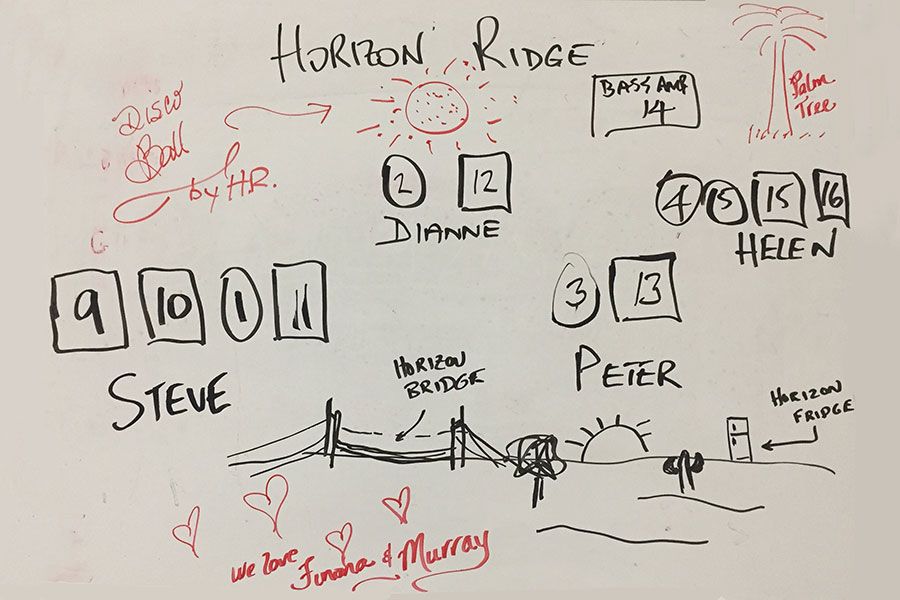 HORIZON RIDGE
DISCO
Ball
by HR.
BASS AMP
14
Palm
Tree
2 12
DIANNE
4 5 15 16
HELEN
9 10 1 11
STEVE
3 13
PETER
HORIZON
BRIDGE
HORIZON
FRIDGE
we love
& Murray